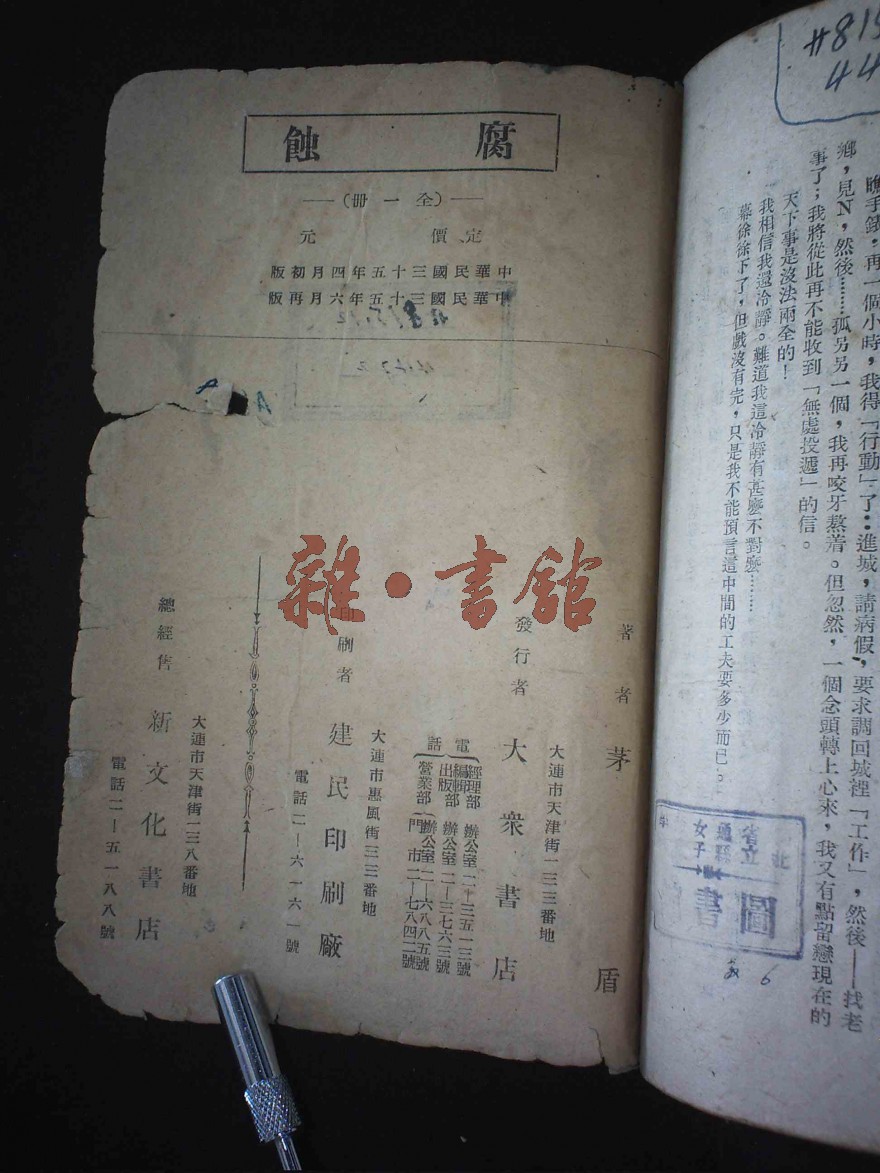 腐蝕
—(全一冊)—
定價 元
中華民國三十五年四月初版
中華民國三十五年六月再版
著者 茅盾
大連市天津街一三二番地
發行者 大衆書店
電話
經理部 辦公室二—三五一三號
編輯部
出版部 辦公室二—三七六三號
營業部 辦公室二—六八八五號
門市二—七八四二號
大連市惠風街三三番地
印刷者 建民印刷廠
電話二—六一六一號
大連市天津街一三八番地
總經售 新文化書店
電話二—五一八八號
雜·書館
#815
44
瞧手錶,再一個小時,我得「行動」了:進城,請病假,要求調回城裡「工作」,然後——找老
鄉,見N,然後……孤另另一個,我再咬牙熬着。但忽然,一個念頭轉上心來,我又有點留戀現在的
事了;我將從此再不能收到「無處投遞」的信。
天下事是沒法兩全的!
我相信我還冷靜。難道我這冷靜有甚麼不對麼……
幕徐徐下了,但戲沒有完,只是我不能預言這中間的工夫要多少而已。
省立
通縣
女子
圖書
6